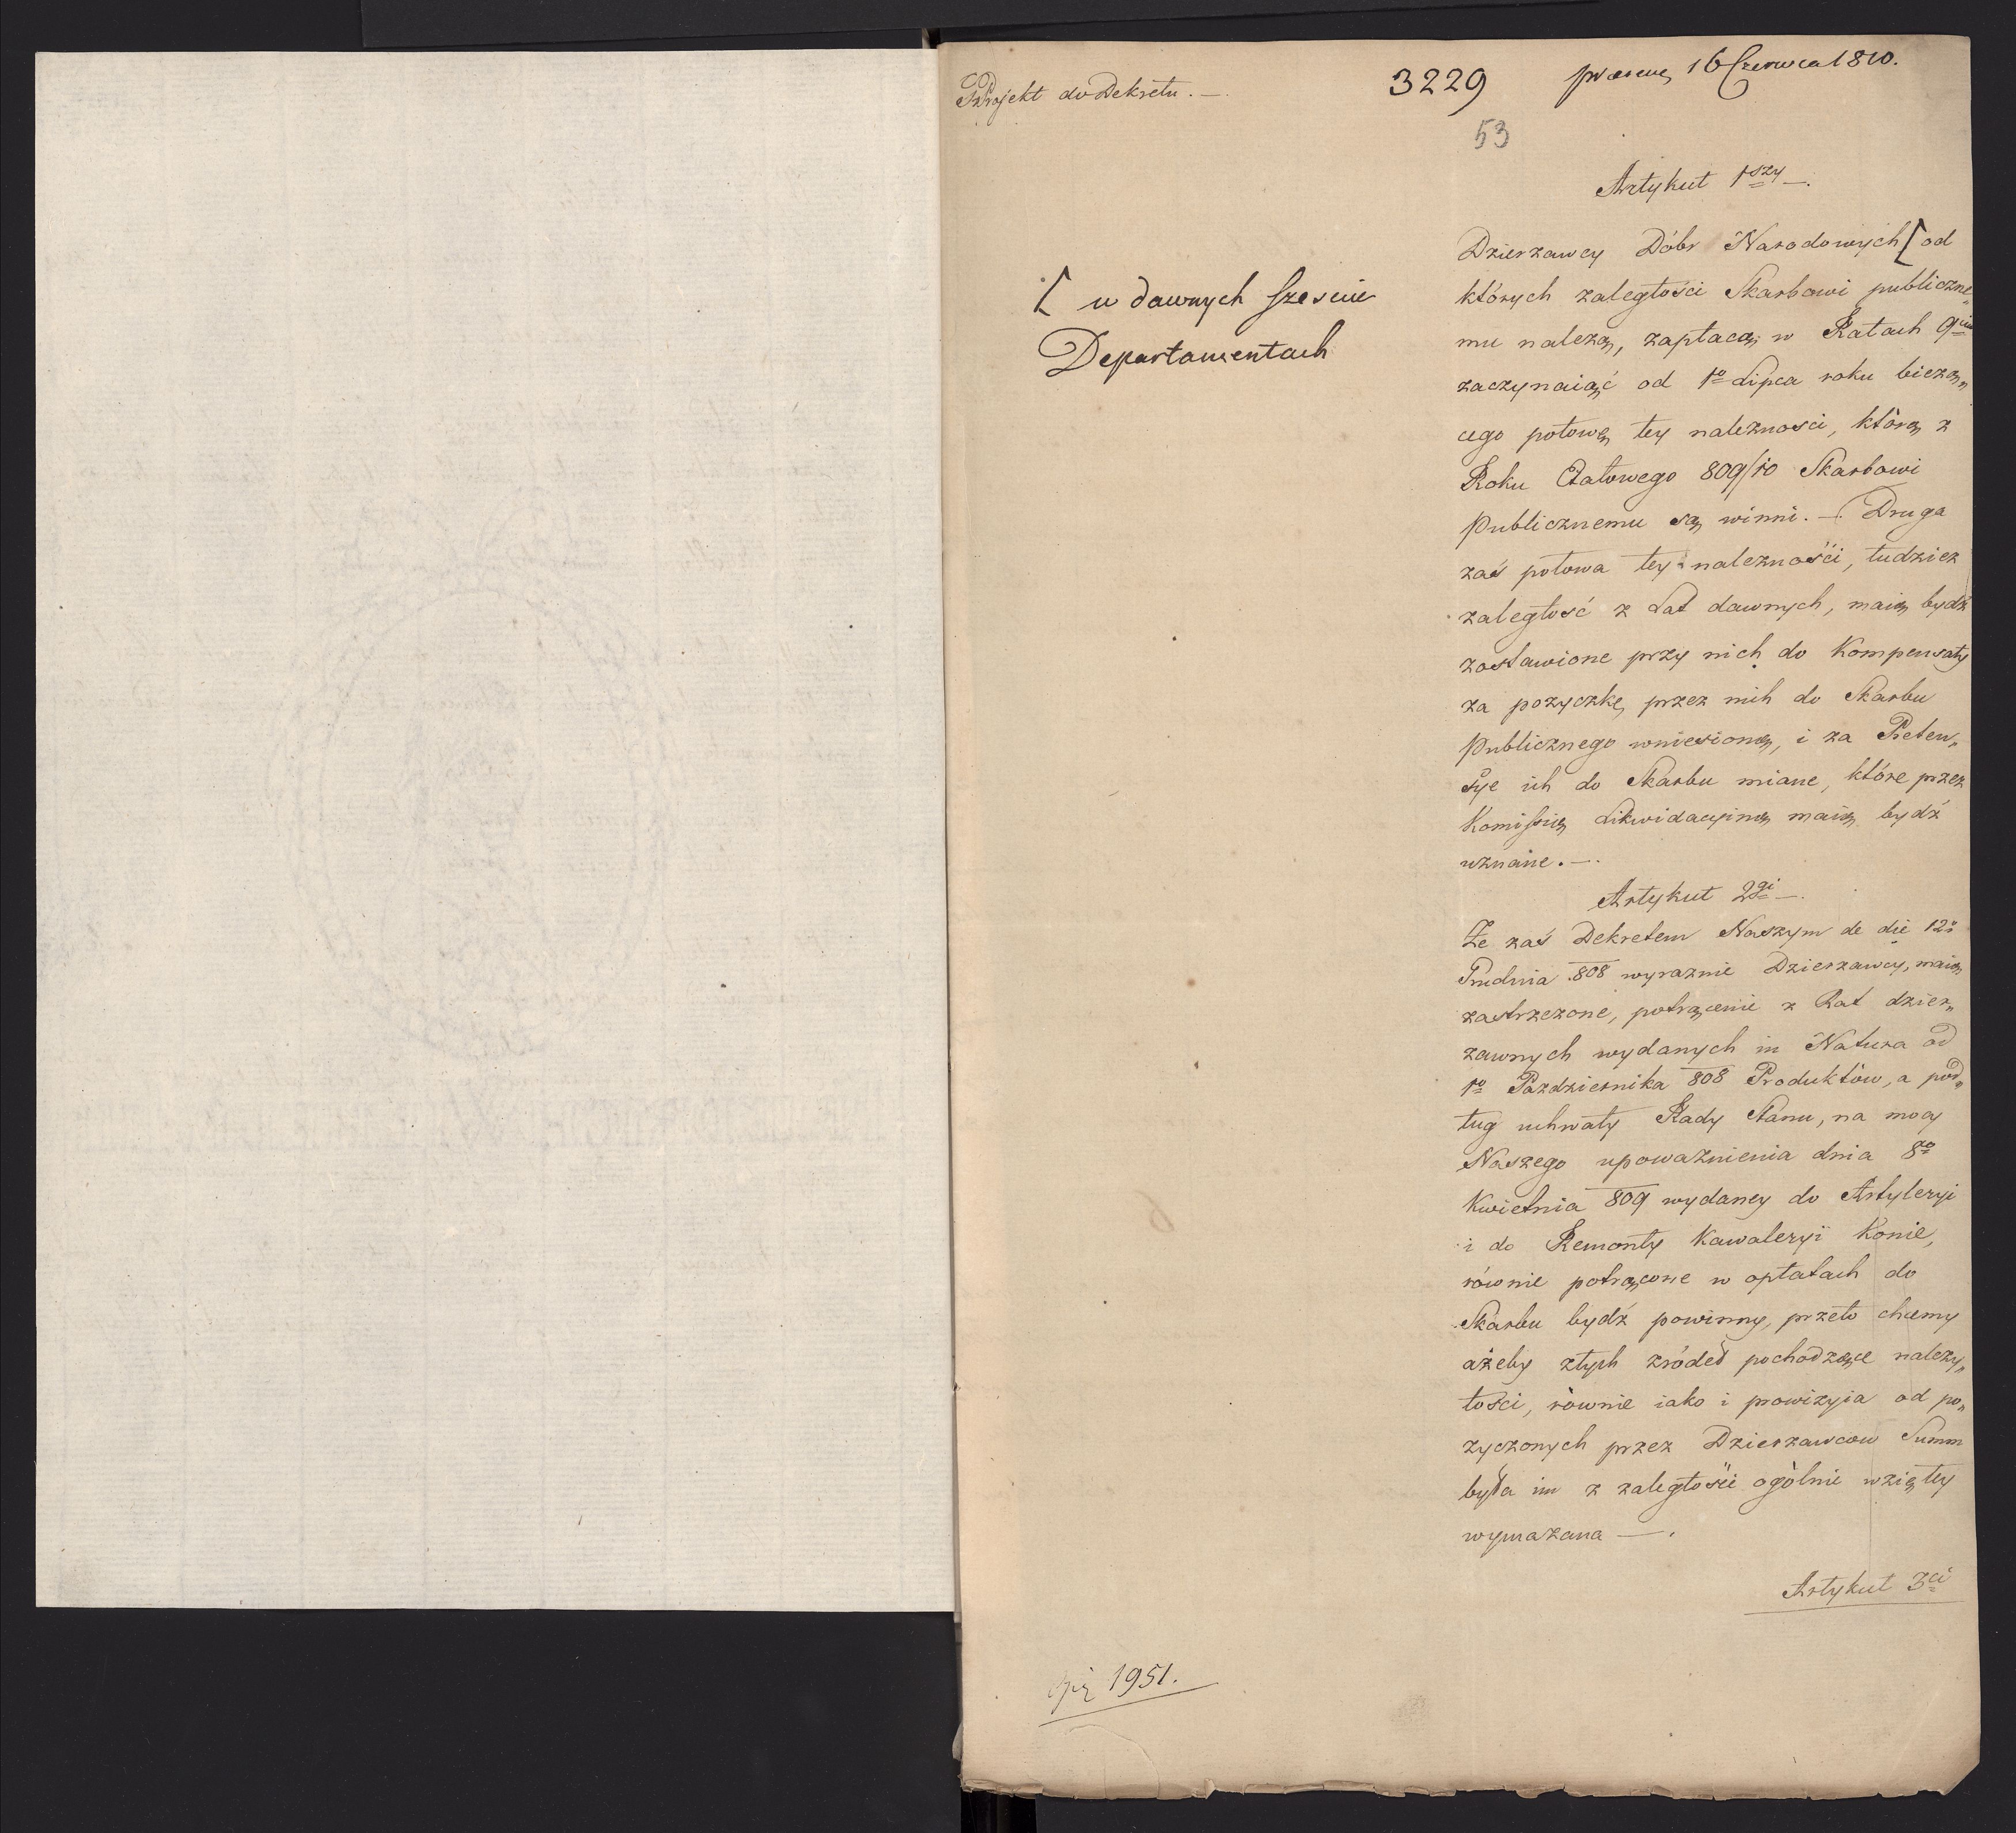 Projekt do Dekretu. —.
3229
praesen. 16 Czerwca 1810.
53
[ w dawnych sześciu
Departamentach
Artykuł 1szy —.
Dzierzawcy Dóbr Narodowych [ od
których zaległości Skarbowi publiczne„
mu należą, zapłacą w Ratach 9ciu
zaczynaiąć od 1o Lipca roku bieżą„
cego połowę tey nalezności, którą z
Roku Etatowego 809/10 Skarbowi
Publicznemu są winni. — Druga
zaś połowa tey nalezności, tudzież
zaległość z Lat dawnych, maią bydź
zostawione przy nich do Kompensaty
za pożyczkę przez nich do Skarbu
Publicznego wniesioną, i za Preten„
sye ich do Skarbu miane, które przez
Komissią Likwidacyiną maią bydź
uznane. —.
Artykuł 2gi —.
Ze zaś Dekretem Naszym de die 12o
Grudnia 808 wyraznie Dzierzawcy, maią
zastrzezone, potrącenie z Rat dzier„
zawnych wydanych in Natura od
1o Pazdziernika 808 Produktów, a pod„
ług uchwały Rady Stanu, na mocy
Naszego upoważnienia dnia 8go
Kwietnia 809 wydaney do Artyleryi
i do Remonty Kawaleryi Konie,
równie potrącone w opłatach do
Skarbu bydź powinny, przeto chcemy
ażeby ztych zródeł pochodzące należy„
tości, równie iako i prowizyia od po„
zyczonych przez Dzierzawcow Summ
była im z zaległości ogólnie wziętey
wymazana —.
Artykuł 3ci
1951.